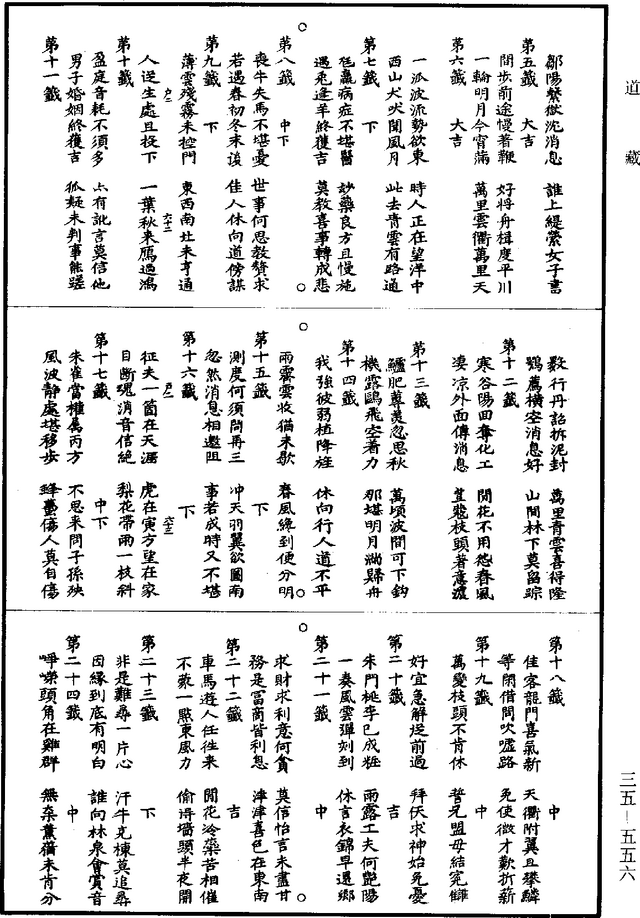 道藏
鄒陽繫獄沈消息　誰上緹縈女子書
第五籤　大吉
閒步前途慢著鞭　好將舟楫度平川
一輪明月今宵滿　萬里雲衢萬里天
第六籤　大吉
一派波流勢欲東　時人正在望洋中
西山犬吠聞風月　此去青雲有路通
第七籤　下
尫羸病症不堪醫　妙藥良方且慢施
遇兎逢羊終獲吉　莫教喜事轉成悲
第八籤　中下
喪牛失馬不堪憂　世事何思教贅求
若遇春初冬末後　佳人休向道傍謀
第九籤　下
薄雲殘霧未控門　東西南北未亨通
人送生處且投下　一葉秋來鴈過鴻
第十籤
盈庭音耗不須多　亦有訛言莫信他
男子婚姻終獲吉　狐疑未判事能蹉
第十一籤
數行丹詔拆泥封　萬里青雲喜得隆
鶚薦橫空消息好　山間林下莫留踪
第十二籤
寒谷陽回奪化工　閒花不用怨春風
凄凉外面傳消息　荳蔻枝頭著意濃
第十三籤
鱸肥蓴羙忽思秋　萬頃波間可下鈎
機露鷗飛空着力　那堪明月滿歸舟
第十四籤
我強彼弱植降旌　休向行人道不平
雨霽雲收猶未歇　春風纔到便分明
第十五籤　下
測度何須問再三　冲天羽翼欲圖南
忽然消息相邀阻　事若成時又不堪
第十六籤　下
征夫一箇在天涯　虎在寅方望在家
目斷魂消音信絕　梨花帶雨一枝斜
第十七籤　中下
朱雀當權屬丙方　不思來問子孫殃
風波静處堪移步　蜂蠆傷人莫自傷
第十八籤　中
佳客龍門喜氣新　天衢附翼且攀鱗
等閑借問吹噓路　免使微才歎折薪
第十九籤　中
萬變枝頭不肯休　誓兄盟母結寃讎
好宜急解從前過　拜伏求神始免憂
第二十籤　吉
朱門桃李已成粧　雨露工夫何艷陽
一奏風雲彈刻到　休言衣錦早還鄉
第二十一籤　中
求財求利意何貪　莫信怡言未盡甘
務是冨商皆利息　津津喜色在東南
第二十二籤　吉
車馬遊人任徃來　閒花冷蘂苦相催
不藪一㸃東風力　偷得墻頭半夜開
第二十三籤　下
非是難尋一片心　汗牛充棟莫追尋
因緣到底有明白　誰向林泉會賞音
第二十四籤　中
崢嶸頭角在雞群　無柰薰蕕未肯分
三五－五五六